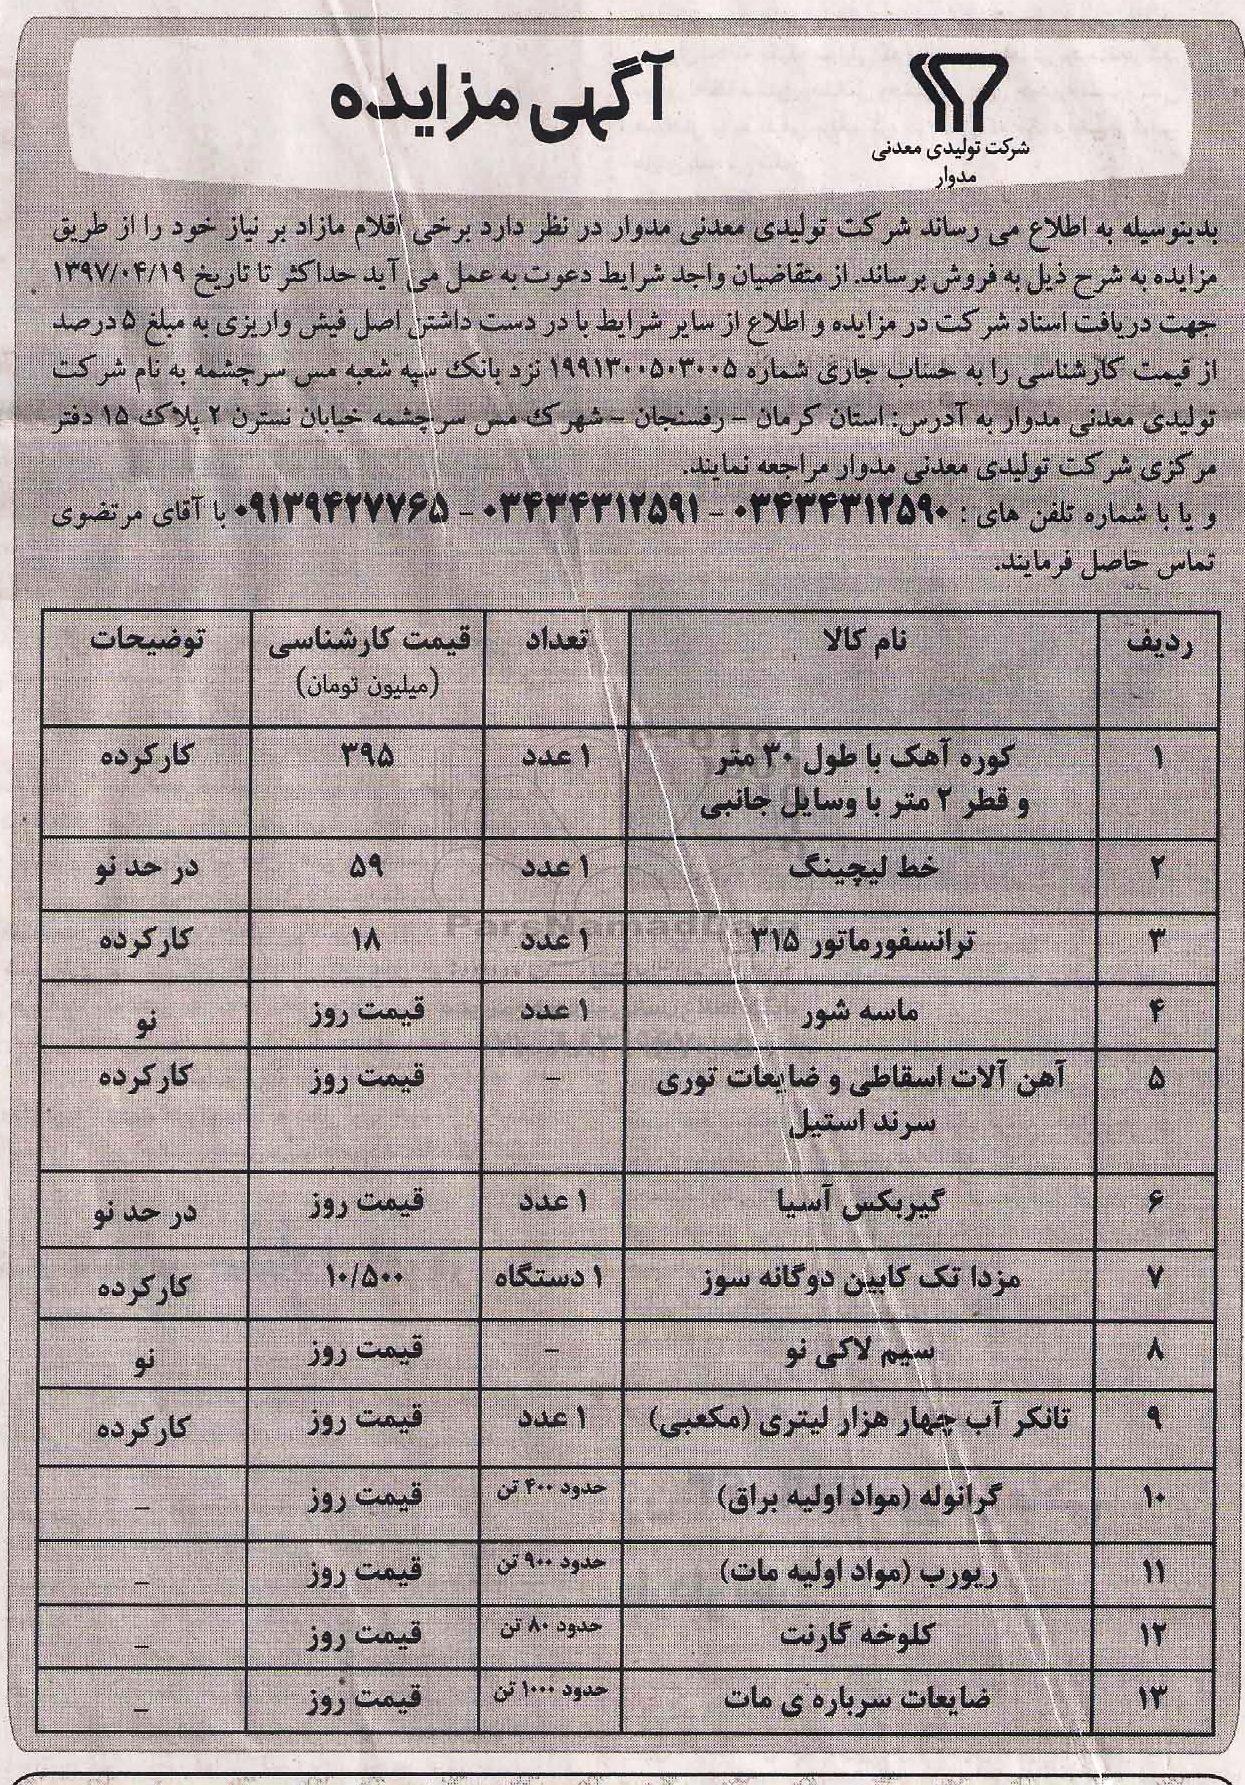 آگهی مزایده
شرکت تولیدی معدنی
مدوار
بدینوسیله به اطلاع می رساند شرکت تولیدی معدنی مدوار در نظر دارد برخی اقلام مازاد بر نیاز خود را از طریق
مزایده به شرح ذیل به فروش برساند. از متقاضیان واجد شرایط دعوت به عمل می آید حداکثر تا تاریخ ۱۳۹۷/۰۴/۱۹
جهت دریافت اسناد شرکت در مزایده و اطلاع از سایر شرایط با در دست داشتن اصل فیش واریزی به مبلغ ۵ درصد
از قیمت کارشناسی را به حساب جاری شماره ۱۹۹۱۳۰۰۵۰۳۰۰۵ نزد بانک سپه شعبه مس سرچشمه به نام شرکت
تولیدی معدنی مدوار به آدرس: استان کرمان - رفسنجان - شهرک مس سرچشمه خیابان نسترن ۲ پلاک ۱۵ دفتر
مرکزی شرکت تولیدی معدنی مدوار مراجعه نمایند.
و یا با شماره تلفن های : ۰۳۴۳۴۳۱۲۵۹۰ - ۰۳۴۳۴۳۱۲۵۹۱ - ۰۹۱۳۹۴۲۷۷۶۵ با آقای مرتضوی
تماس حاصل فرمایند.
ردیف نام کالا تعداد قیمت کارشناسی توضیحات
(میلیون تومان)
۱ کوره آهک با طول ۳۰ متر ۱ عدد ۳۹۵ کارکرده
و قطر ۲ متر با وسایل جانبی
۲ خط لیچینگ ۱ عدد ۵۹ در حد نو
۳ ترانسفورماتور ۳۱۵ ۱ عدد ۱۸ کارکرده
۴ ماسه شور ۱ عدد قیمت روز نو
۵ آهن آلات اسقاطی و ضایعات توری - قیمت روز کارکرده
سرند استیل
۶ گیربکس آسیا ۱ عدد قیمت روز در حد نو
۷ مزدا تک کابین دوگانه سوز ۱ دستگاه ۱۰/۵۰۰ کارکرده
۸ سیم لاکی نو - قیمت روز نو
۹ تانکر آب چهار هزار لیتری (مکعبی) ۱ عدد قیمت روز کارکرده
۱۰ گرانوله (مواد اولیه براق) حدود ۴۰۰ تن قیمت روز -
۱۱ ریورب (مواد اولیه مات) حدود ۹۰۰ تن قیمت روز -
۱۲ کلوخه گارنت حدود ۸۰ تن قیمت روز -
۱۳ ضایعات سرباره ی مات حدود ۱۰۰۰ تن قیمت روز -